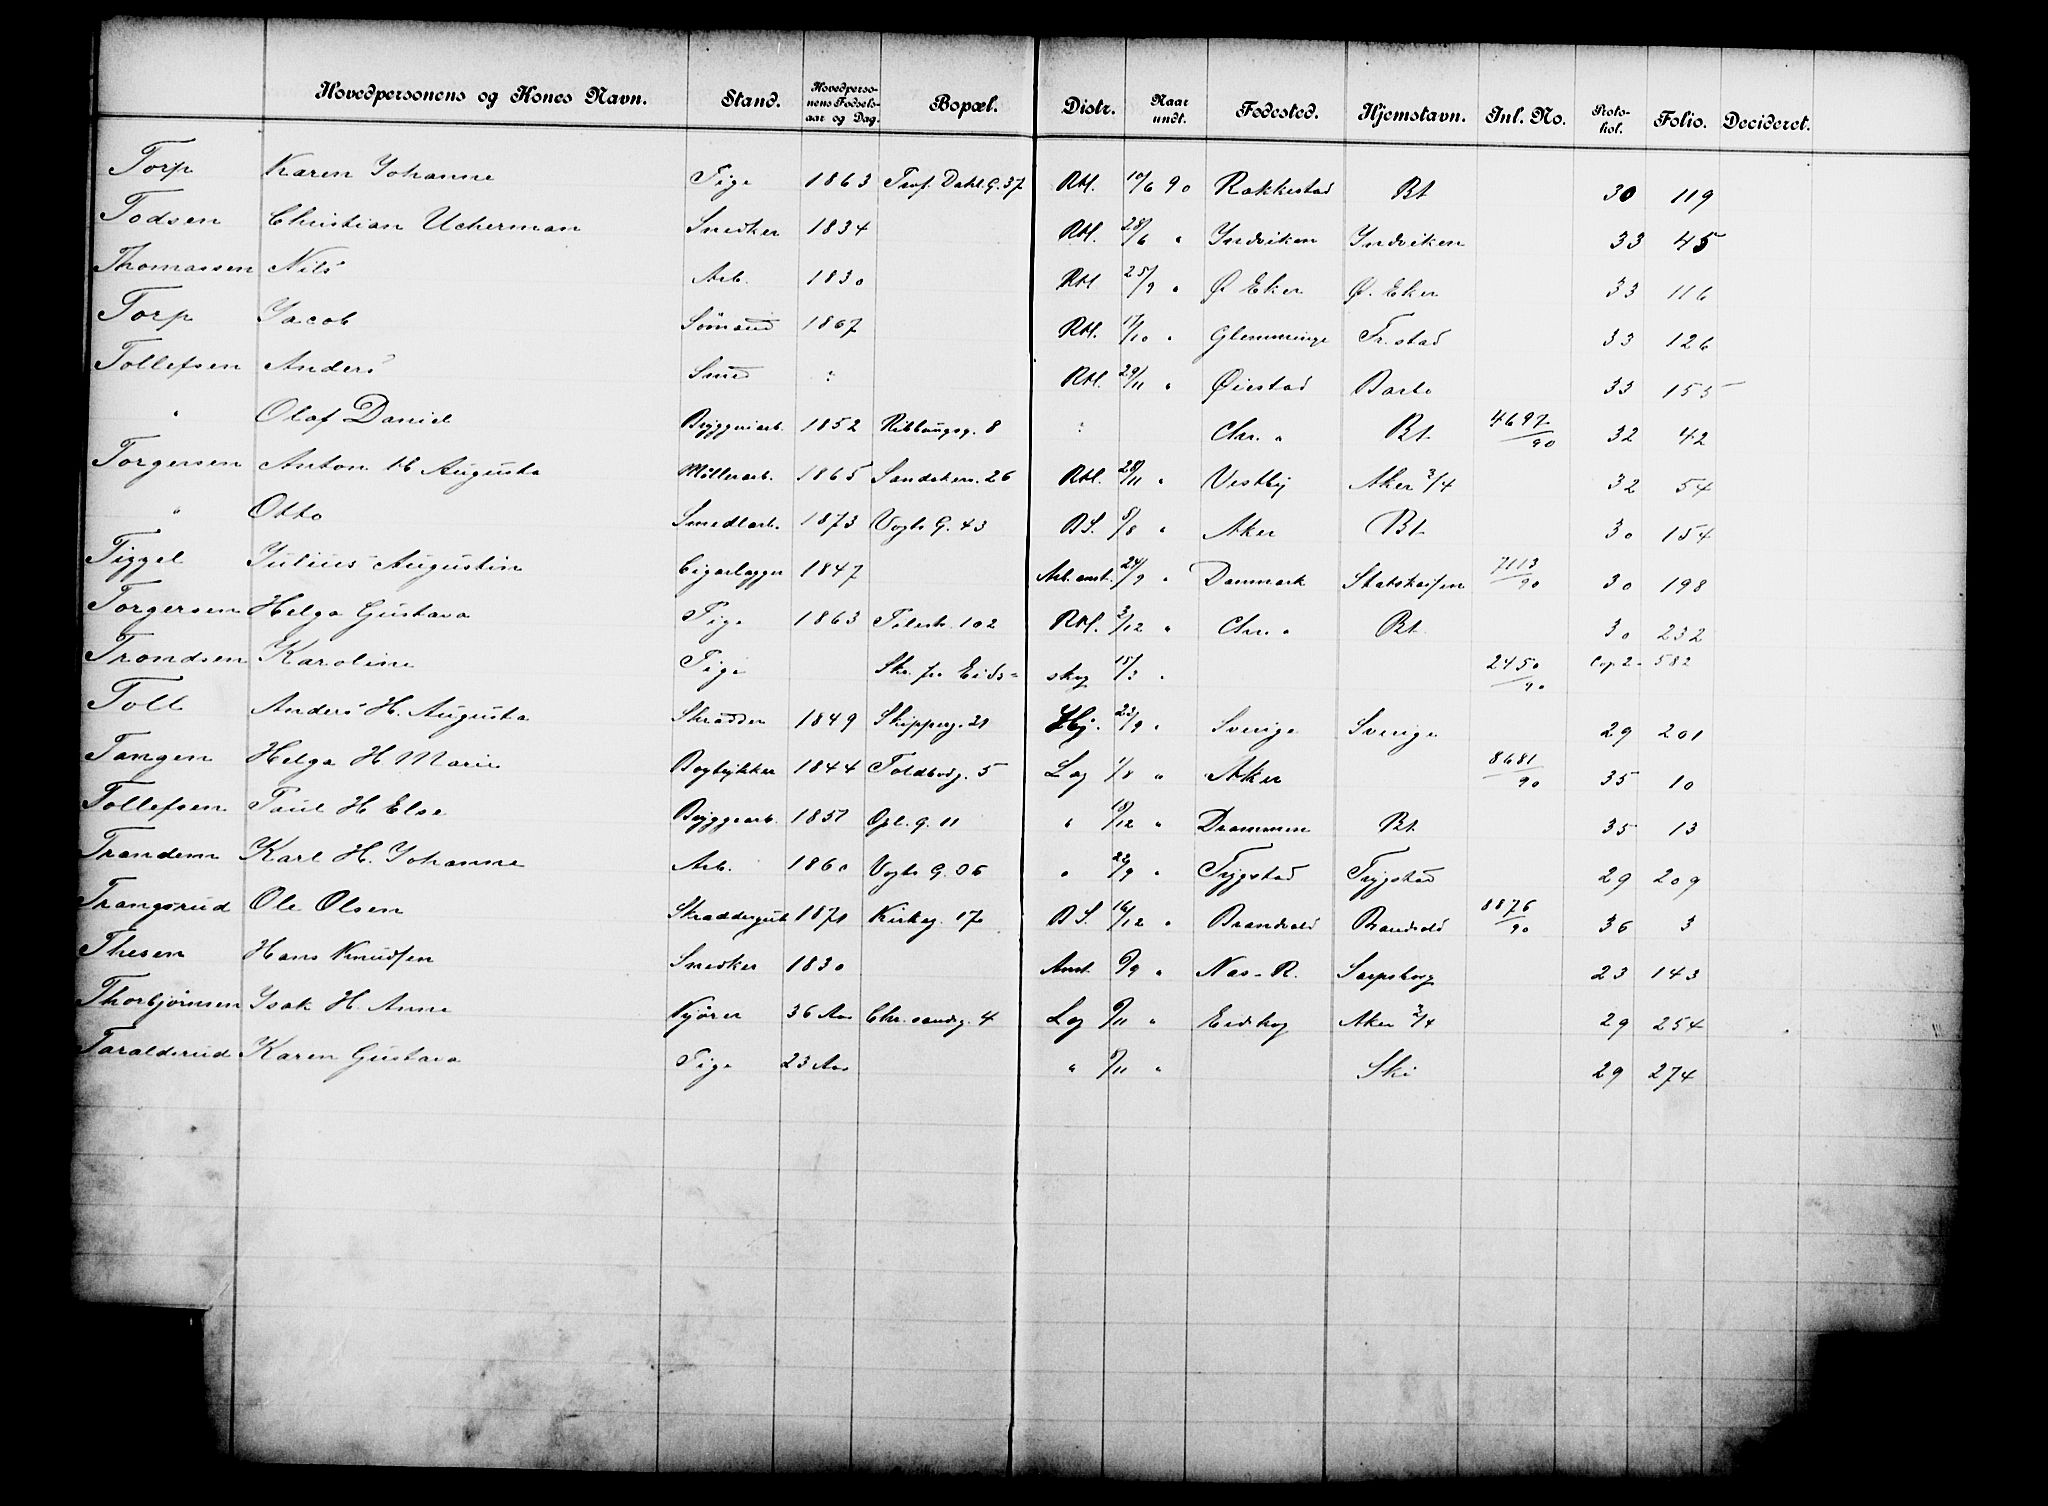 Hovedpersonens og Kones Navn. Stand. Hovedpersonens Fødselsaar og Dag. Bopæl. Distr. Naar undt. Fødested. Hjemstavn. Inl. No. Protokol. Folio. Decideret.
Torp Karen Johanne Pige 1863 Prof. Dahl. G. 37 Rtl. 10/6 90 Rakkestad Bt 30 119
Todsen Christian Ucherman Snedker 1834 Rtl. 28/6 " Indviken Indviken 33 45
Thomassen Nils Arb. 1830 Rtl 25/9 " Ø. Eker Ø. Eker 33 116
Torp Jacob Sømand 1867 Rtl. 17/10 " Glemminge Fr.stad 33 126
Tollefsen Anders Smed : Rtl. 29/11 " Øiestad Barbo 33 155
" Olaf Daniel Bryggeriarb. 1852 Ribbungsg. 8 : Chr. a Bt 4697/90 32 42
Torgersen Anton H Augusta Møllerarb. 1865 Sandakerv. 26 Rtl. 28/11 " Vestby Aker 3/4 32 54
" Otto Smedlærl. 1873 Vogts G. 43 BS. 8/8 " Aker Bt 30 154
Tiggel Julius Augustin Cigarlægger 1847 Arb. anst. 24/9 " Danmark Statskassen 7113/90 30 198
Torgersen Helga Gustava Pige 1863 Pilestr. 102 Rtl. 3/12 " Chr. a Bt 30 232
Trondsen Karoline Pige Skr. fra Eidsskog 15/3 " 2450/90 Cop. 2 - 582
Toll Anders H. Augusta Skrædder 1849 Skipperg. 21 Hj. 23/9 " Sverige Sverige 29 201
Tangen Helge H Marie Bogtrykker 1844 Toldbodg. 5 Log 1/8 " Aker 8681/90 35 10
Tollefsen Paul H Else Bryggearb. 1857 G. 11 " /12 " Drammen Bt 35 13
Trandem Karl H. Johanne Arb. 1860 Vogts G. 06 " 22/9 " Trygstad Trygstad 29 209
Trangsrud Ole Olsen Skræddergut 1871 Kirkeg. 17 BS. 16/12 " Brandvold Brandvold 8876/90 36 3
Thesen Hans Knudsen Snedker 1830 Anst. /9 " Næs - R. Sarpsborg 23 143
Thorbjørnsen Isak H. Anne Kjører 36 Aar Chr. sandsg. 4 Log /11 " Eidskog Aker 3/4 29 254
Taralderud Karen Gustava Pige 23 Aar " /11 " Ski 29 274